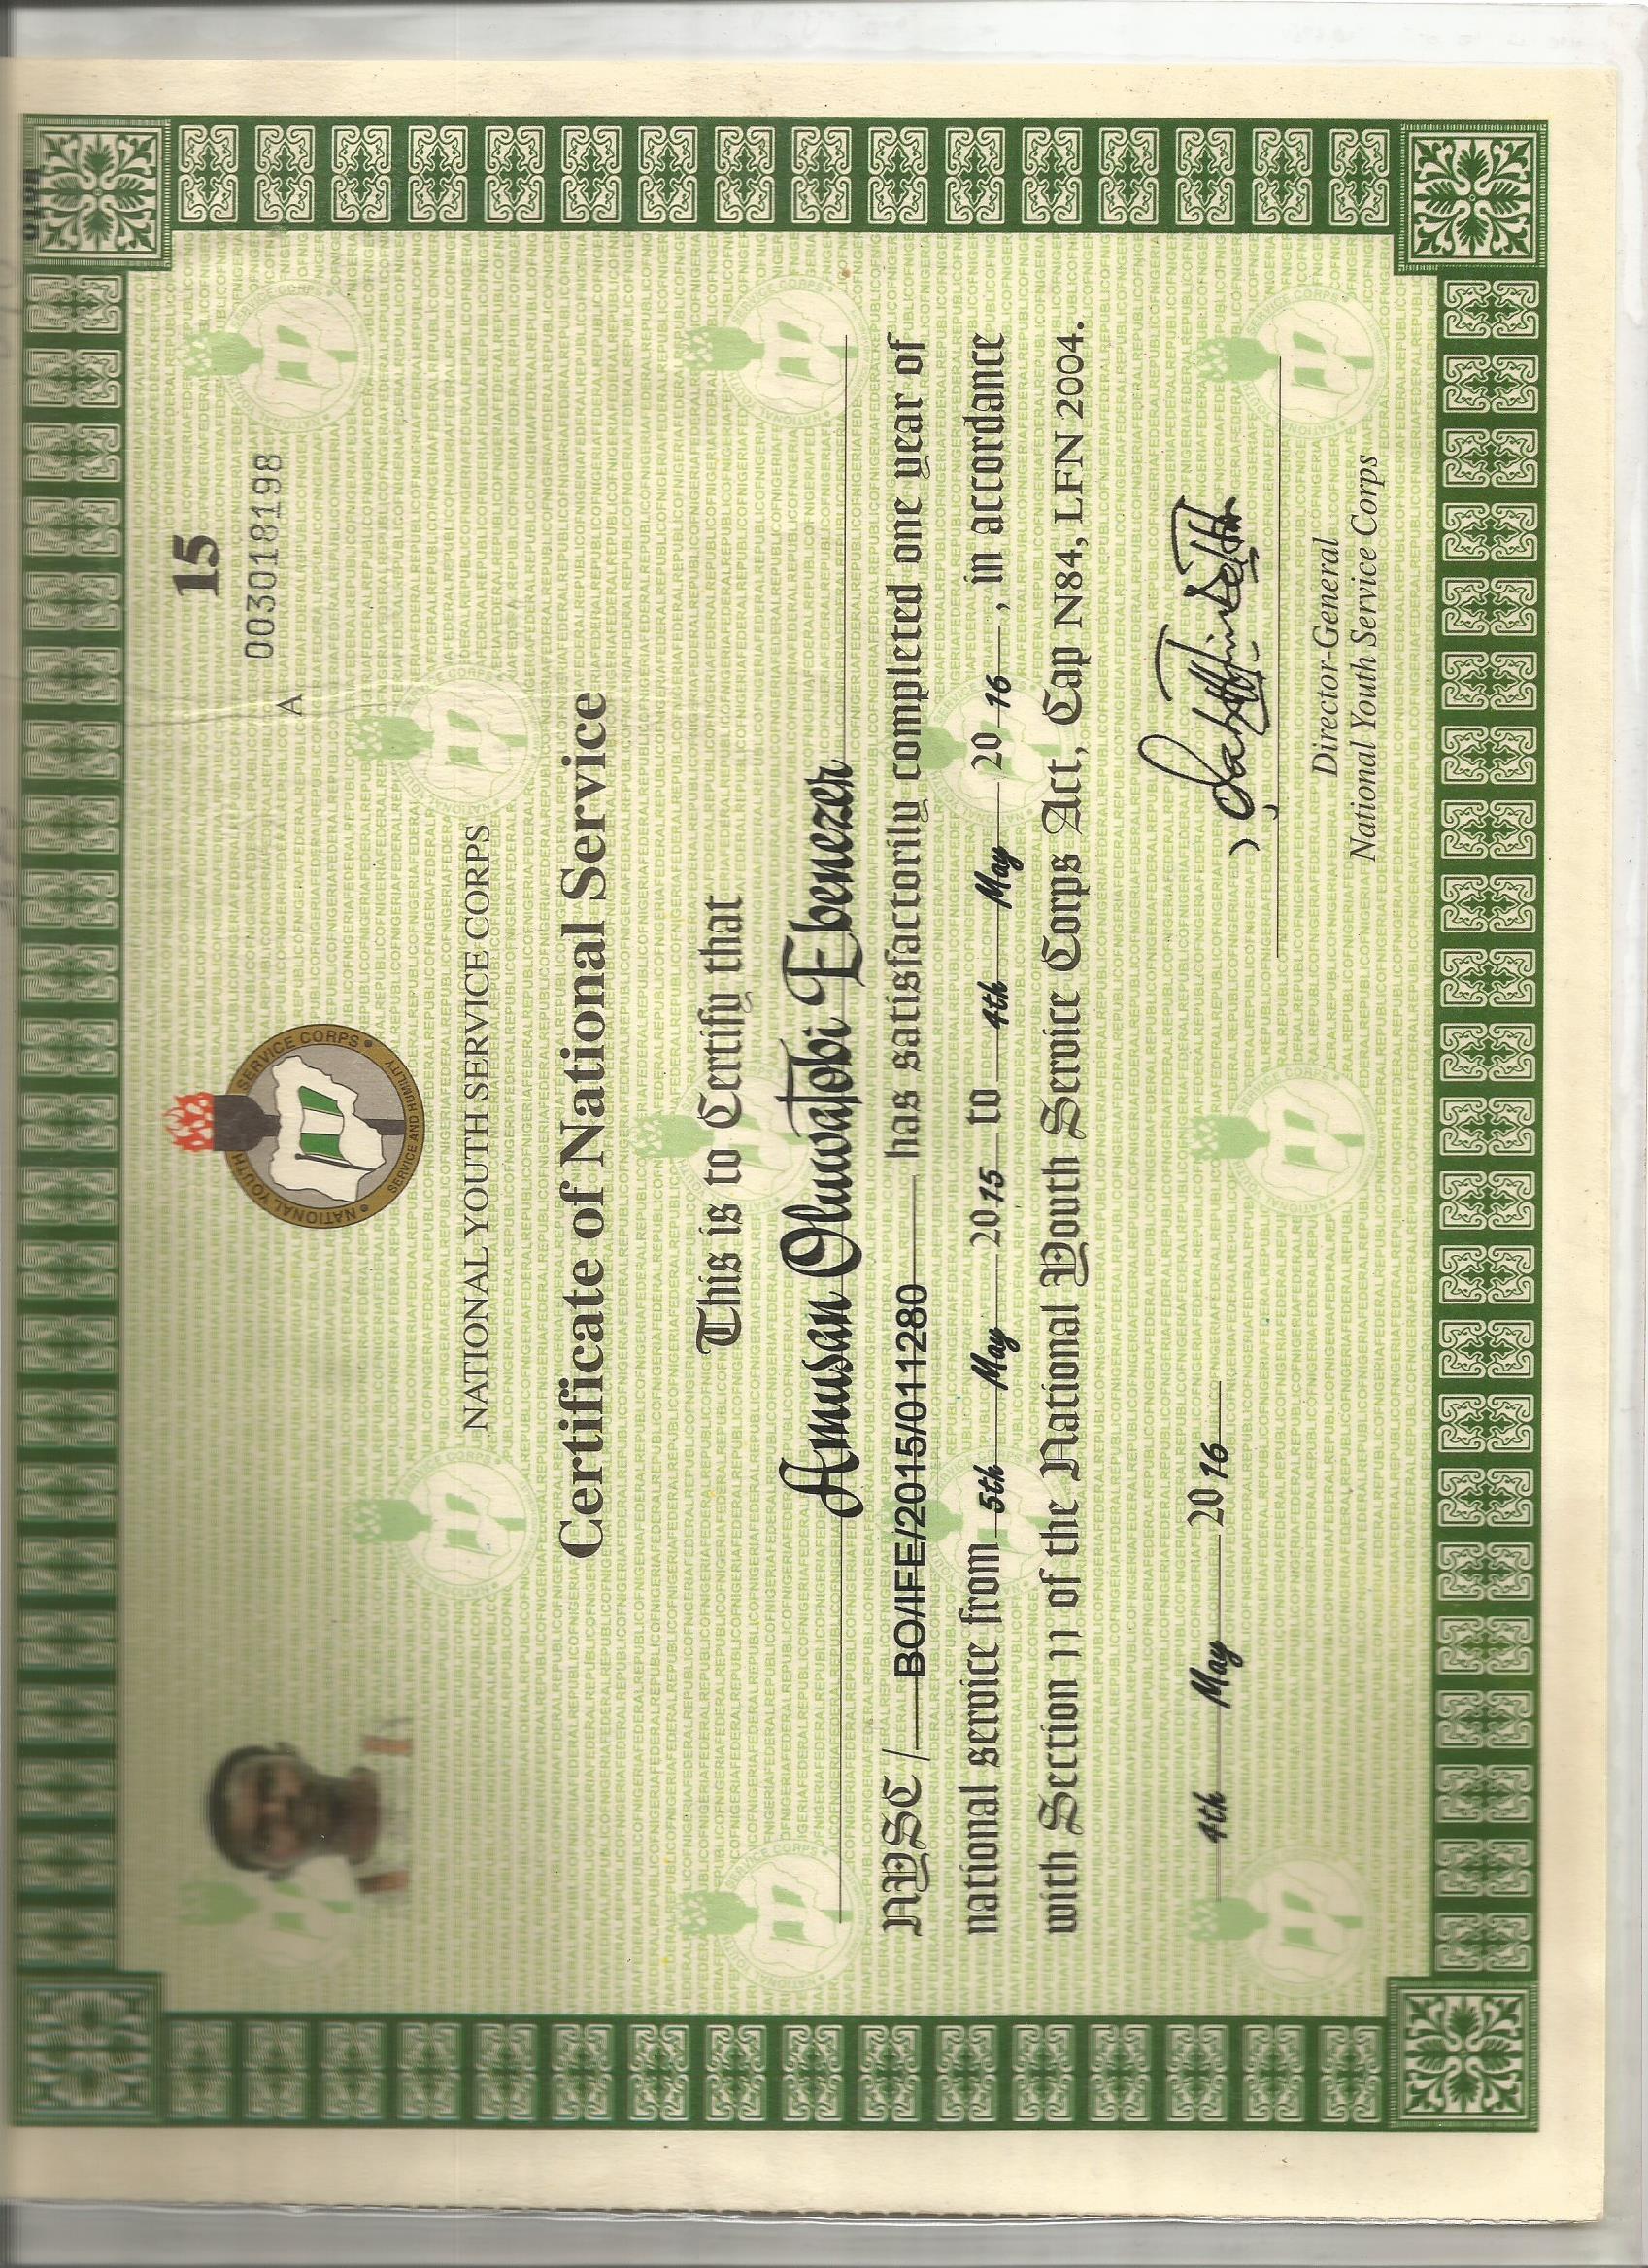 15
A 003018198
NATIONAL YOUTH SERVICE CORPS
SERVICE AND HUMILITY
NATIONAL YOUTH SERVICE CORPS
Certificate of National Service
This is to Certify that
Amusan OluwaTobi Ebenezer
NYSC / BO/IFE/2015/011280 has satisfactorily completed one year of
national service from 5th May 2015 to 4th May 2016, in accordance
with Section 11 of the National Youth Service Corps Act, Cap N84, LFN 2004.
4th May 2016
Director-General
National Youth Service Corps